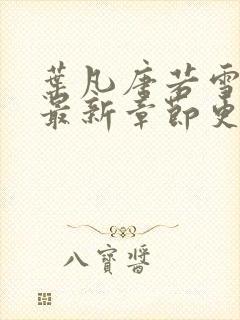 葉凡唐若雪
最新章節更
八寶醬